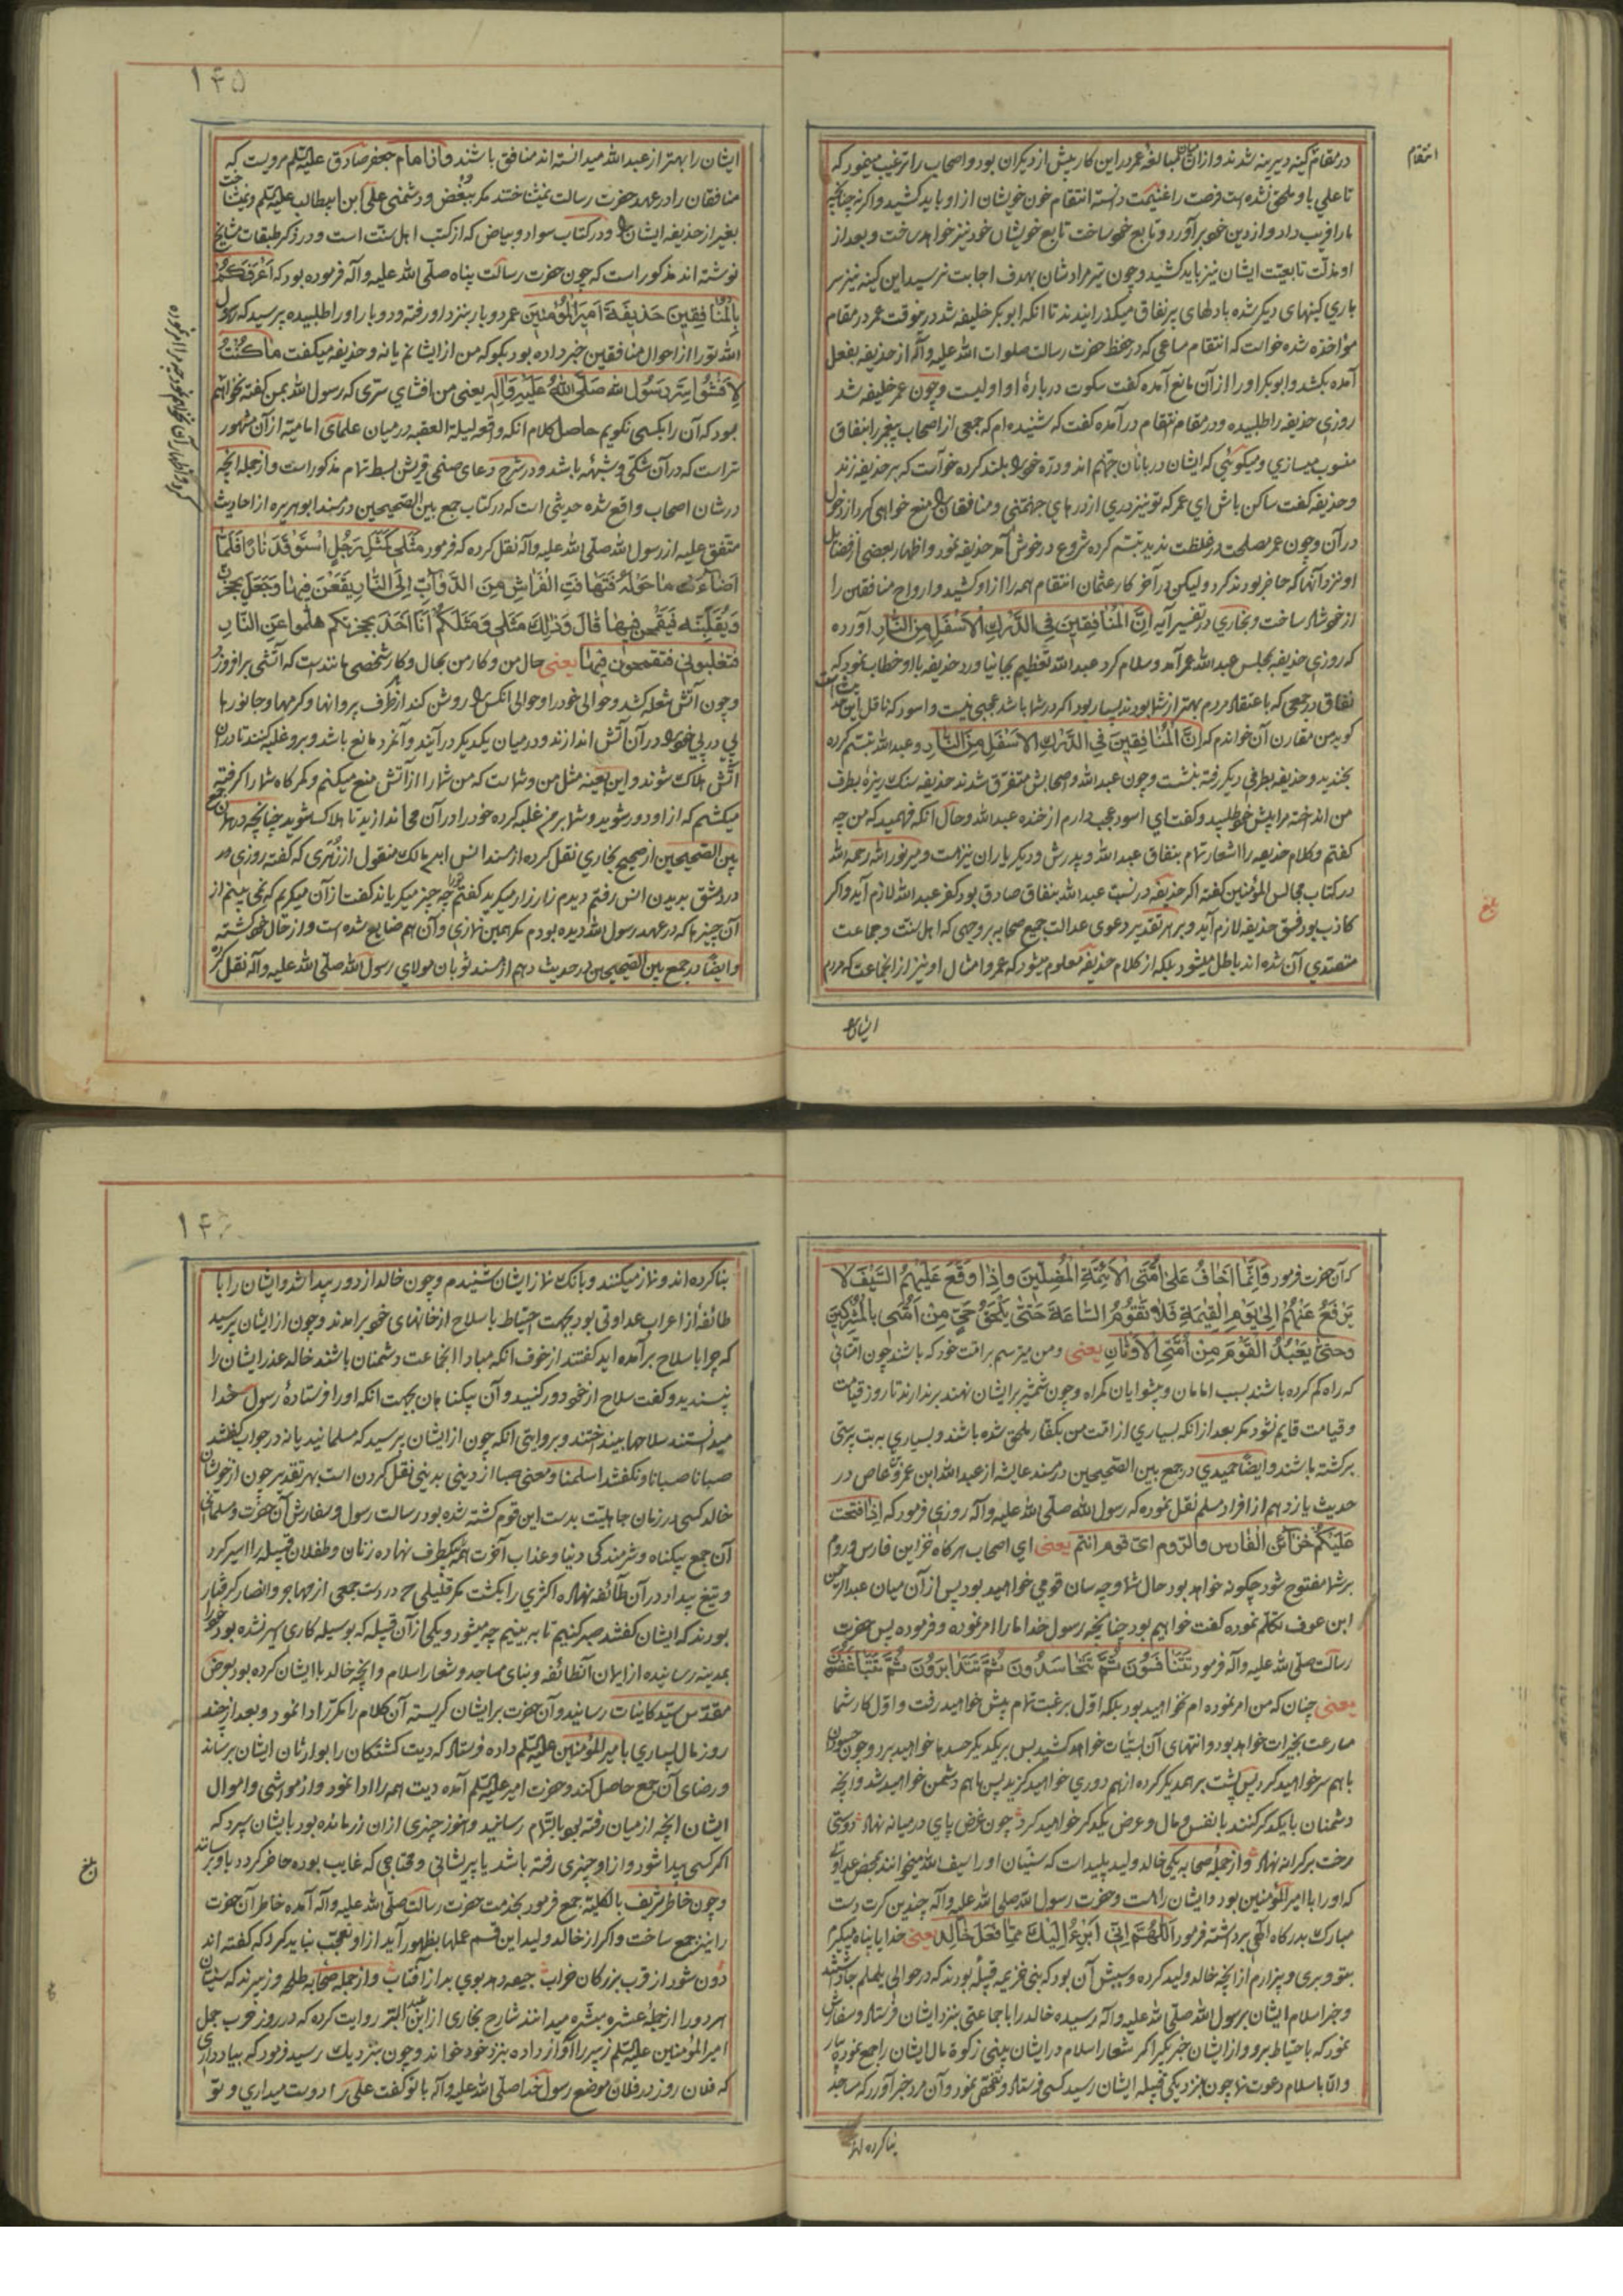 در مقام کینه دیرینه شدند و ازان جمله مبالغه عمر در این کار بیش از دیگران بود و اصحاب را ترغیب مینمود که
تا علی باو ملحق نشده است فرصت را غنیمت دانسته انتقام خون خویشان از او باید کشید و اگر نه چنانچه
ما را فریب داد و از دین خود برآورد و تابع خود ساخت تابع خویشان خود نیز خواهد ساخت و بعد از
او مذلت تابعیت ایشان نیز باید کشید و چون تیر مرادشان بهدف اجابت نرسید این کینه نیز سر
باری کینهای دیگر شده بادلهای پر نفاق میگذرانیدند تا انکه ابوبکر خلیفه شد درینوقت عمر در مقام
مؤاخذه شده خواست که انتقام مساعی که در حفظ حضرت رسالت صلوات الله علیه و آله از حذیفه بفعل
آمده بکشد و ابوبکر او را از آن مانع آمده گفت سکوت درباره او اولیست و چون عمر خلیفه شد
روزی حذیفه را طلبیده و در مقام انتقام درآمده گفت که شنیده ام که جمعی از اصحاب پیغمبر را بنفاق
منسوب میسازی و میگوئی که ایشان دربانان جهنم اند و دره خود بلند کرده خواست که بر حذیفه زند
و حذیفه گفت ساکن باش ای عمر که تو نیز دری از درهای جهنمی و منافقان را منع خواهی کرد از دخول
در آن و چون عمر مصلحت در غلظت ندید تبسم کرده شروع در خوش آمد حذیفه نمود و اظهار بعضی از فضایل
او نزد آنها که حاضر بودند کرد و لیکن در آخر کار عثمان انتقام همه را از او کشید و ارواح منافقین را
از خود شاد ساخت و بخاری در تفسیر آیه اِنَّ الْمُنَافِقِينَ فِي الدَّرْكِ الْاَسْفَلِ مِنَ النَّارِ آورده
که روزی حذیفه بمجلس عبدالله عمر آمد و سلام کرد عبدالله تعظیم بجا نیاورد حذیفه با او خطاب نمود که
نفاق در جمعی که باعتقاد مردم بهتر از شما بودند بسیار بود اگر در شما باشد عجبی نیست و اسود که ناقل این حدیث است
گوید من مقارن آن خواندم که اِنَّ الْمُنَافِقِينَ فِي الدَّرْكِ الْاَسْفَلِ مِنَ النَّارِ و عبدالله تبسم کرده
بخندید و حذیفه بطرفی دیگر رفته بنشست و چون عبدالله و اصحابش متفرق شدند حذیفه سنک ریزه بطرف
من انداخته مرا پیش خود طلبید و گفت ای اسود عجب دارم از خنده عبدالله و حال انکه فهمید که من چه
گفتم و کلام حذیفه را اشعار تمام بنفاق عبدالله و پدرش و دیگر یاران نیز هست و میر نور الله رحمه الله
در کتاب مجالس المؤمنین گفته اگر حذیفه در نسبت عبدالله بنفاق صادق بود کفر عبدالله لازم آید و اگر
کاذب بود فسق حذیفه لازم آید و بر هر تقدیر دعوی عدالت جمیع صحابه بر وجهی که اهل سنت و جماعت
متصدی آن شده اند باطل میشود بلکه از کلام حذیفه معلوم میشود که عمر و امثال او نیز از انجماعت که مردم
ایشان را
انتقام
بلغ
۱۴۵
ایشان را بهتر از عبدالله میدانسته اند منافق باشند و از امام جعفر صادق علیه السلم مرویست که
منافقان را در عهد حضرت رسالت نمیشناختند مگر ببغض و دشمنی علی ابن ابیطالب علیه السلم و نمیشناخت
بغیر از حذیفه ایشان را و در کتاب سواد و بیاض که از کتب اهل سنت است و در ذکر طبقات مشایخ
نوشته اند مذکور است که چون حضرت رسالت پناه صلی الله علیه و آله فرموده بود که اَعْرَفُكُمْ
بِالْمُنَافِقِينَ حُذَيْفَةُ اَمِيرَ الْمُؤْمِنِينَ عمر دوبار بنزد او رفته و دوبار او را طلبیده پرسید که رسول
الله تو را از احوال منافقین خبر داده بود بگو که من از ایشانم یا نه و حذیفه میگفت مَا كُنْتُ
لِاُفْشُوا سِرَّ رَسُولِ الله صَلَّى اللهُ عَلَيْهِ وَآلِهِ یعنی من افشای سری که رسول الله بمن گفته نخواهم
نمود که آن را بکسی نگویم حاصل کلام انکه واقعه لیلة العقبه در میان علمای امامیه از آن مشهور
تر است که در آن شکی و شبهه باشد و در شرح دعای صنمی قریش ببسط تمام مذکور است و از جمله انچه
در شان اصحاب واقع شده حدیثی است که در کتاب جمع بین الصحیحین در مسند ابوهریره از احادیث
متفق علیه از رسول الله صلی الله علیه و آله نقل کرده که فرمود مَثَلِی كَمَثَلِ رَجُلٍ اسْتَوْقَدَ نَارًا فَلَمَّا
اَضَاءَتْ مَا حَوْلَهُ فَتَهَافَتَ الْفَرَاشِ مِنَ الدَّوَابِّ اِلَى النَّارِ يَقَعْنَ فِيهَا وَجَعَلَ يَحْجُزُهُنَّ
وَيَغْلِبْنَهُ فَيَقْتَحِمْنَ فِيهَا قَالَ وَذٰلِكَ مَثَلِي وَمَثَلُكُمْ اَنَا اٰخِذٌ بِحُجَزِكُم هَلُموا عَنِ النَّارِ
فتغلبونی فتقتحمون فیها یعنی حال من و کار من بحال و کار شخصی مانندست که آتشی برافروزد
و چون آتش شعله کشد و حوالی خود را و حوالی انکس را روشن کند از هر طرف پروانها و کرمها و جانورها
پی در پی خود را در آن آتش اندازند و در میان یکدیگر درآیند و آنمرد مانع باشد و برو غلبه کنند تا در ان
آتش هلاک شوند و این بعینه مثل من و شماست که من شما را از آتش منع میکنم و کمرگاه شما را گرفته
میکشم که از او دور شوید و شما بر من غلبه کرده خود را در آن می اندازید تا هلاک شوید چنانچه در همان جمع
بین الصحیحین از صحیح بخاری نقل کرده از مسند انس ابن مالک منقول از زهری که گفت روزی در
در دمشق بدیدن انس رفتم دیدم زار زار میگرید گفتم چه چیز میگریاند گفت از آن میگریم که نمی بینم از
آن چیزها که در عهد رسول الله دیده بودم مگر همین نمازی و آن هم ضایع شده است و از حال خود گشته
و ایضا در جمع بین الصحیحین در حدیث دهم از مسند ثوبان مولای رسول الله صلی الله علیه و آله نقل کرده
که آن حضرت فرمود وَاِنَّمَا اَخَافُ عَلٰى اُمَّتِی الْاَئِمَّةَ الْمُضِلِّينَ وَاِذَا وَقَعَ عَلَيْهِمُ السَّيْفُ لَا
يَرْفَعُ عَنْهُمْ اِلٰى يَوْمِ الْقِيٰمَةِ فَلَا تَقُومُ السَّاعَةُ حَتّٰى يَلْحَقَ حَیٌّ مِنْ اُمَّتِی بِالْمُشْرِكِينَ
وَحَتّٰى يَعْبُدَ الْقَوْمُ مِنْ اُمَّتِی الْاَوْثَانِ یعنی و من میترسم بر امت خود که باشند چون امتانی
که راه گم کرده باشند بسبب امامان و پیشوایان گمراه و چون شمشیر بر ایشان نهند برندارند تا روز قیامت
و قیامت قایم نشود مگر بعد از انکه بسیاری از امت من بکفار ملحق شده باشند و بسیاری به بت پرستی
برگشته باشند و ایضا حمیدی در جمع بین الصحیحین در مسند عایشه از عبدالله ابن عمرو عاص در
حدیث یازدهم از افراد مسلم نقل نموده که رسول الله صلی الله علیه و آله روزی فرمود که اذا فتحت
عَلَيْكُمْ خَزَائِنُ الْفَارِسِ وَالرُّومِ اَیُّ قَوْمٍ اَنْتُم یعنی ای اصحاب هرگاه خزاین فارس و روم
بر شما مفتوح شود چگونه خواهد بود حال شما و چه سان قومی خواهید بود پس از آن میان عبدالرحمن
ابن عوف تکلم نموده گفت خواهیم بود چنانچه رسول خدا ما را امر نموده و فرموده پس حضرت
رسالت صلی الله علیه و آله فرمود تَتَنَافَسُونَ ثُمَّ تَتَحَاسَدُونَ ثُمَّ تَتَدَابَرُونَ ثُمَّ تَتَبَاغَضُونَ
یعنی چنان که من امر نموده ام نخواهید بود بلکه اول برغبت تمام پیش خواهید رفت و اول کار شما
مسارعت بخیرات خواهد بود و انتهای آن بسیئات خواهد کشید پس بر یکدیگر حسدها خواهید برد و چون حسودان
باهم سر خواهید کرد پس پشت بر همدیگر کرده از هم دوری خواهید گزید پس باهم دشمن خواهید شد و انچه
دشمنان با یکدیگر کنند با نفس و مال و عرض یکدیگر خواهید کرد چون غرض پای در میانه نهاد دوستی
رخت بر کرانه نهاد و از جمله صحابه یکی خالد ولید پلید است که سنیان او را سیف الله میخوانند بمحض عداوتی
که او را با امیر المؤمنین بود و ایشان راهست و حضرت رسول الله صلی الله علیه و آله چندین کرت دست
مبارک بدرگاه الهی برداشته فرمود اَللّٰهُمَّ اِنِّی اَبْرَءُ اِلَيْكَ مِمَّا فَعَلَ خَالِد یعنی خدایا پناه میگیرم
بتو و بری و بیزارم از انچه خالد ولید کرده و سببش آن بود که بنی خزیمه قبیله بودند که در حوالی یلملم جا داشتند
و خبر اسلام ایشان برسول الله صلی الله علیه و آله رسیده خالد را با جماعتی بنزد ایشان فرستاد و سفارش
نمود که باحتیاط برو و از ایشان خبر بگیر اگر شعار اسلام در ایشان بینی زکوة مال ایشان را جمع نموده بیار
و الا باسلام دعوت نما چون بنزدیکی قبیله ایشان رسید کسی فرستاد و تفحص نمود و آن مرد خبر آورد که مساجد
بنا کرده اند
۱۴۶
بنا کرده اند و نماز میکنند و بانک نماز ایشان شنیدم و چون خالد از دور پیدا شد و ایشان را با
طائفه از اعراب عداوتی بود بجهت احتیاط با سلاح از خانهای خود برامدند و چون از ایشان پرسید
که چرا با سلاح برآمده اید گفتند از خوف انکه مبادا انجماعت دشمنان باشند خالد عذر ایشان را
نپسندید و گفت سلاح از خود دور کنید و آن بیگناهان بجهت انکه او را فرستاده رسول خدا
میدانستند سلاحها بینداختند و بروایتی انکه چون از ایشان پرسید که مسلمانید یا نه در جواب گفتند
صبانا صبانا و نگفتند اسلمنا و معنی صبا از دینی بدینی نقل کردن است بهر تقدیر چون از خویشان
خالد کسی در زمان جاهلیت بدست این قوم کشته شده بود رسالت رسول و سفارش آن حضرت و مسلمانی
آن جمع بیگناه و شرمندگی دنیا و عذاب آخرت همه بیکطرف نهاده زنان و طفلان قبیله را اسیر کرد
و تیغ بیداد در آن طائفه نهاد اکثری را بکشت مگر قلیلی که در دست جمعی از مهاجر و انصار گرفتار
بودند که ایشان گفتند صبر کنیم تا به بینیم چه میشود و یکی از آن قبیله که بوسیله کاری اسیر نشده بود خود را
بمدینه رسانیده از ایمان آنطائفه و بنای مساجد و شعار اسلام و انچه خالد با ایشان کرده بود بعرض
مقدس سید کاینات رسانید و آن حضرت بر ایشان گریسته آن کلام را مکرر ادا نمود و بعد از چند
روز مال بسیاری بامیر المؤمنین علیه السلم داده فرستاد که دیت کشتگان را بوارثان ایشان برساند
و رضای آن جمع حاصل کند و حضرت امیر علیه السلم آمده دیت همه را ادا نمود و از مواشی و اموال
ایشان انچه از میان رفته بود بالتمام رسانید و هنوز چیزی ازان زر مانده بود بایشان سپرد که
اگر کسی پیدا شود و از او چیزی رفته باشد یا پریشانی و محتاجی که غایب بوده حاضر گردد باو برسانند
و چون خاطر شریف بالکلیه جمع فرمود بخدمت حضرت رسالت صلی الله علیه و آله آمده خاطر آن حضرت
را نیز جمع ساخت و اگر از خالد ولید این قسم عملها بظهور آید از او تعجب نباید کرد که گفته اند
دون شود از قرب بزرگان خراب جیفه دهد بوی بد از آفتاب و از جمله صحابه طلحه و زبیرند که سنیان
هر دو را از جمله عشره مبشره میدانند شارح بخاری از ابن عبد البر روایت کرده که در روز حرب جمل
امیر المؤمنین علیه السلم زبیر را آواز داده بنزد خود خواند و چون بنزدیک رسید فرمود که بیاد داری
که فلان روز در فلان موضع رسول خدا صلی الله علیه و آله با تو گفت علی را دوست میداری و تو
بلغ